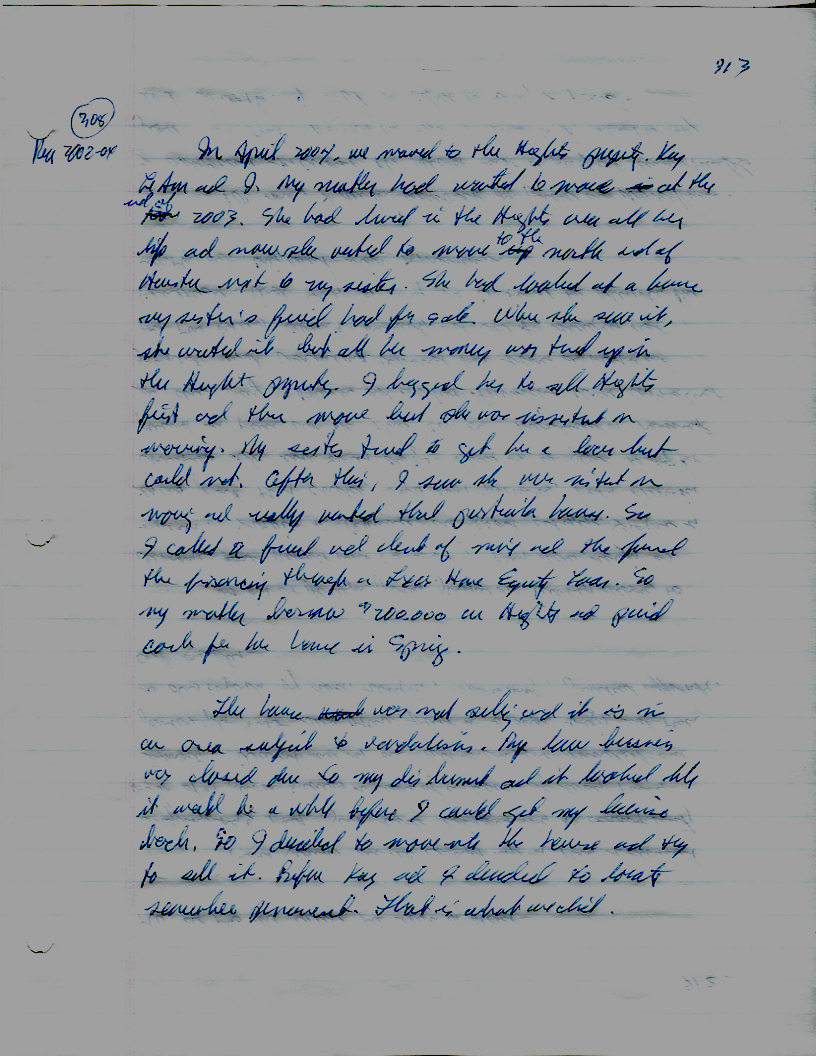 313
308
2002-04
In April 2004, we moved to the Heights property. Kay
LeAnn and I. My mother had wanted to move at the
end of 2003. She had lived in the Heights all her
life and now she wanted to move to the north end of
Houston next to my sister. She had looked at a house
my sister's friend had for sale. When she saw it,
she wanted it but all her money was tied up in
the Height property. I begged her to sell Heights
first and then move but she was insistent on
moving. My sister tried to get her a loan but
could not. After this, I saw she was insistent on
moving and really wanted that particular house. So
I called a friend and client of mine and he found
the financing through a Texas Home Equity Loan. So
my mother borrow $200,000 on Heights and paid
cash for the house in Spring.
The house was not selling and it is in
an area subject to vandalism. My law business
was closed due to my disbarment and it looked like
it would be a while before I could get my license
back. So I decided to move into the house and try
to sell it. Before Kay and I decided to locate
somewhere permanent. That is what we did.